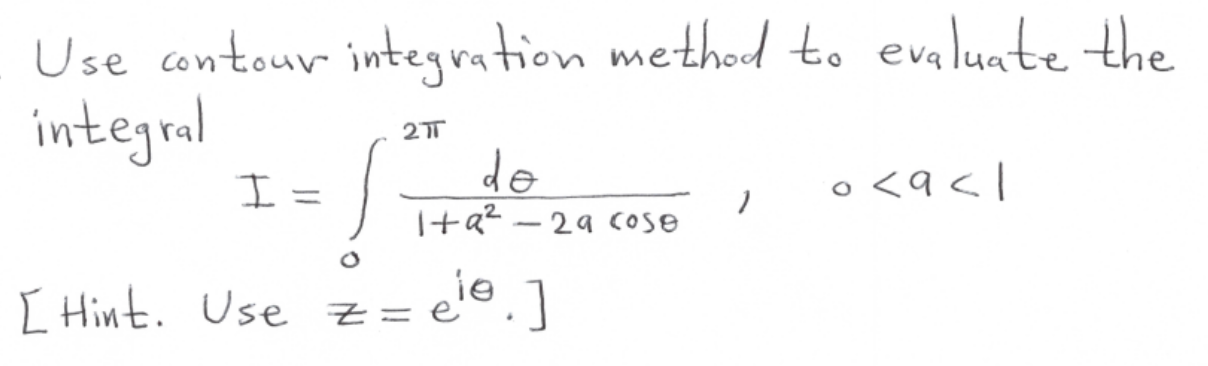 Use contour integration method to evaluate the
integral
I = ∫₀^{2π} dθ / (1+a² − 2a cosθ) , 0<a<1
[Hint. Use z = e^{iθ}.]